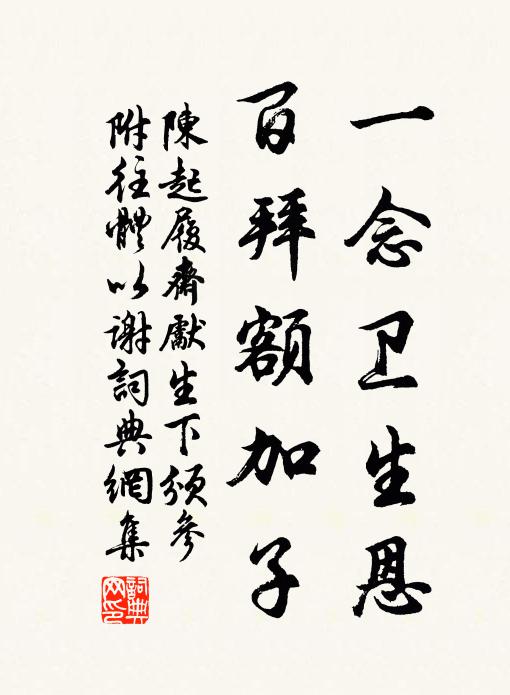 一念卫生恩
百拜額加子
陳起履齋獻生下頒參
附往體以謝詞典網集